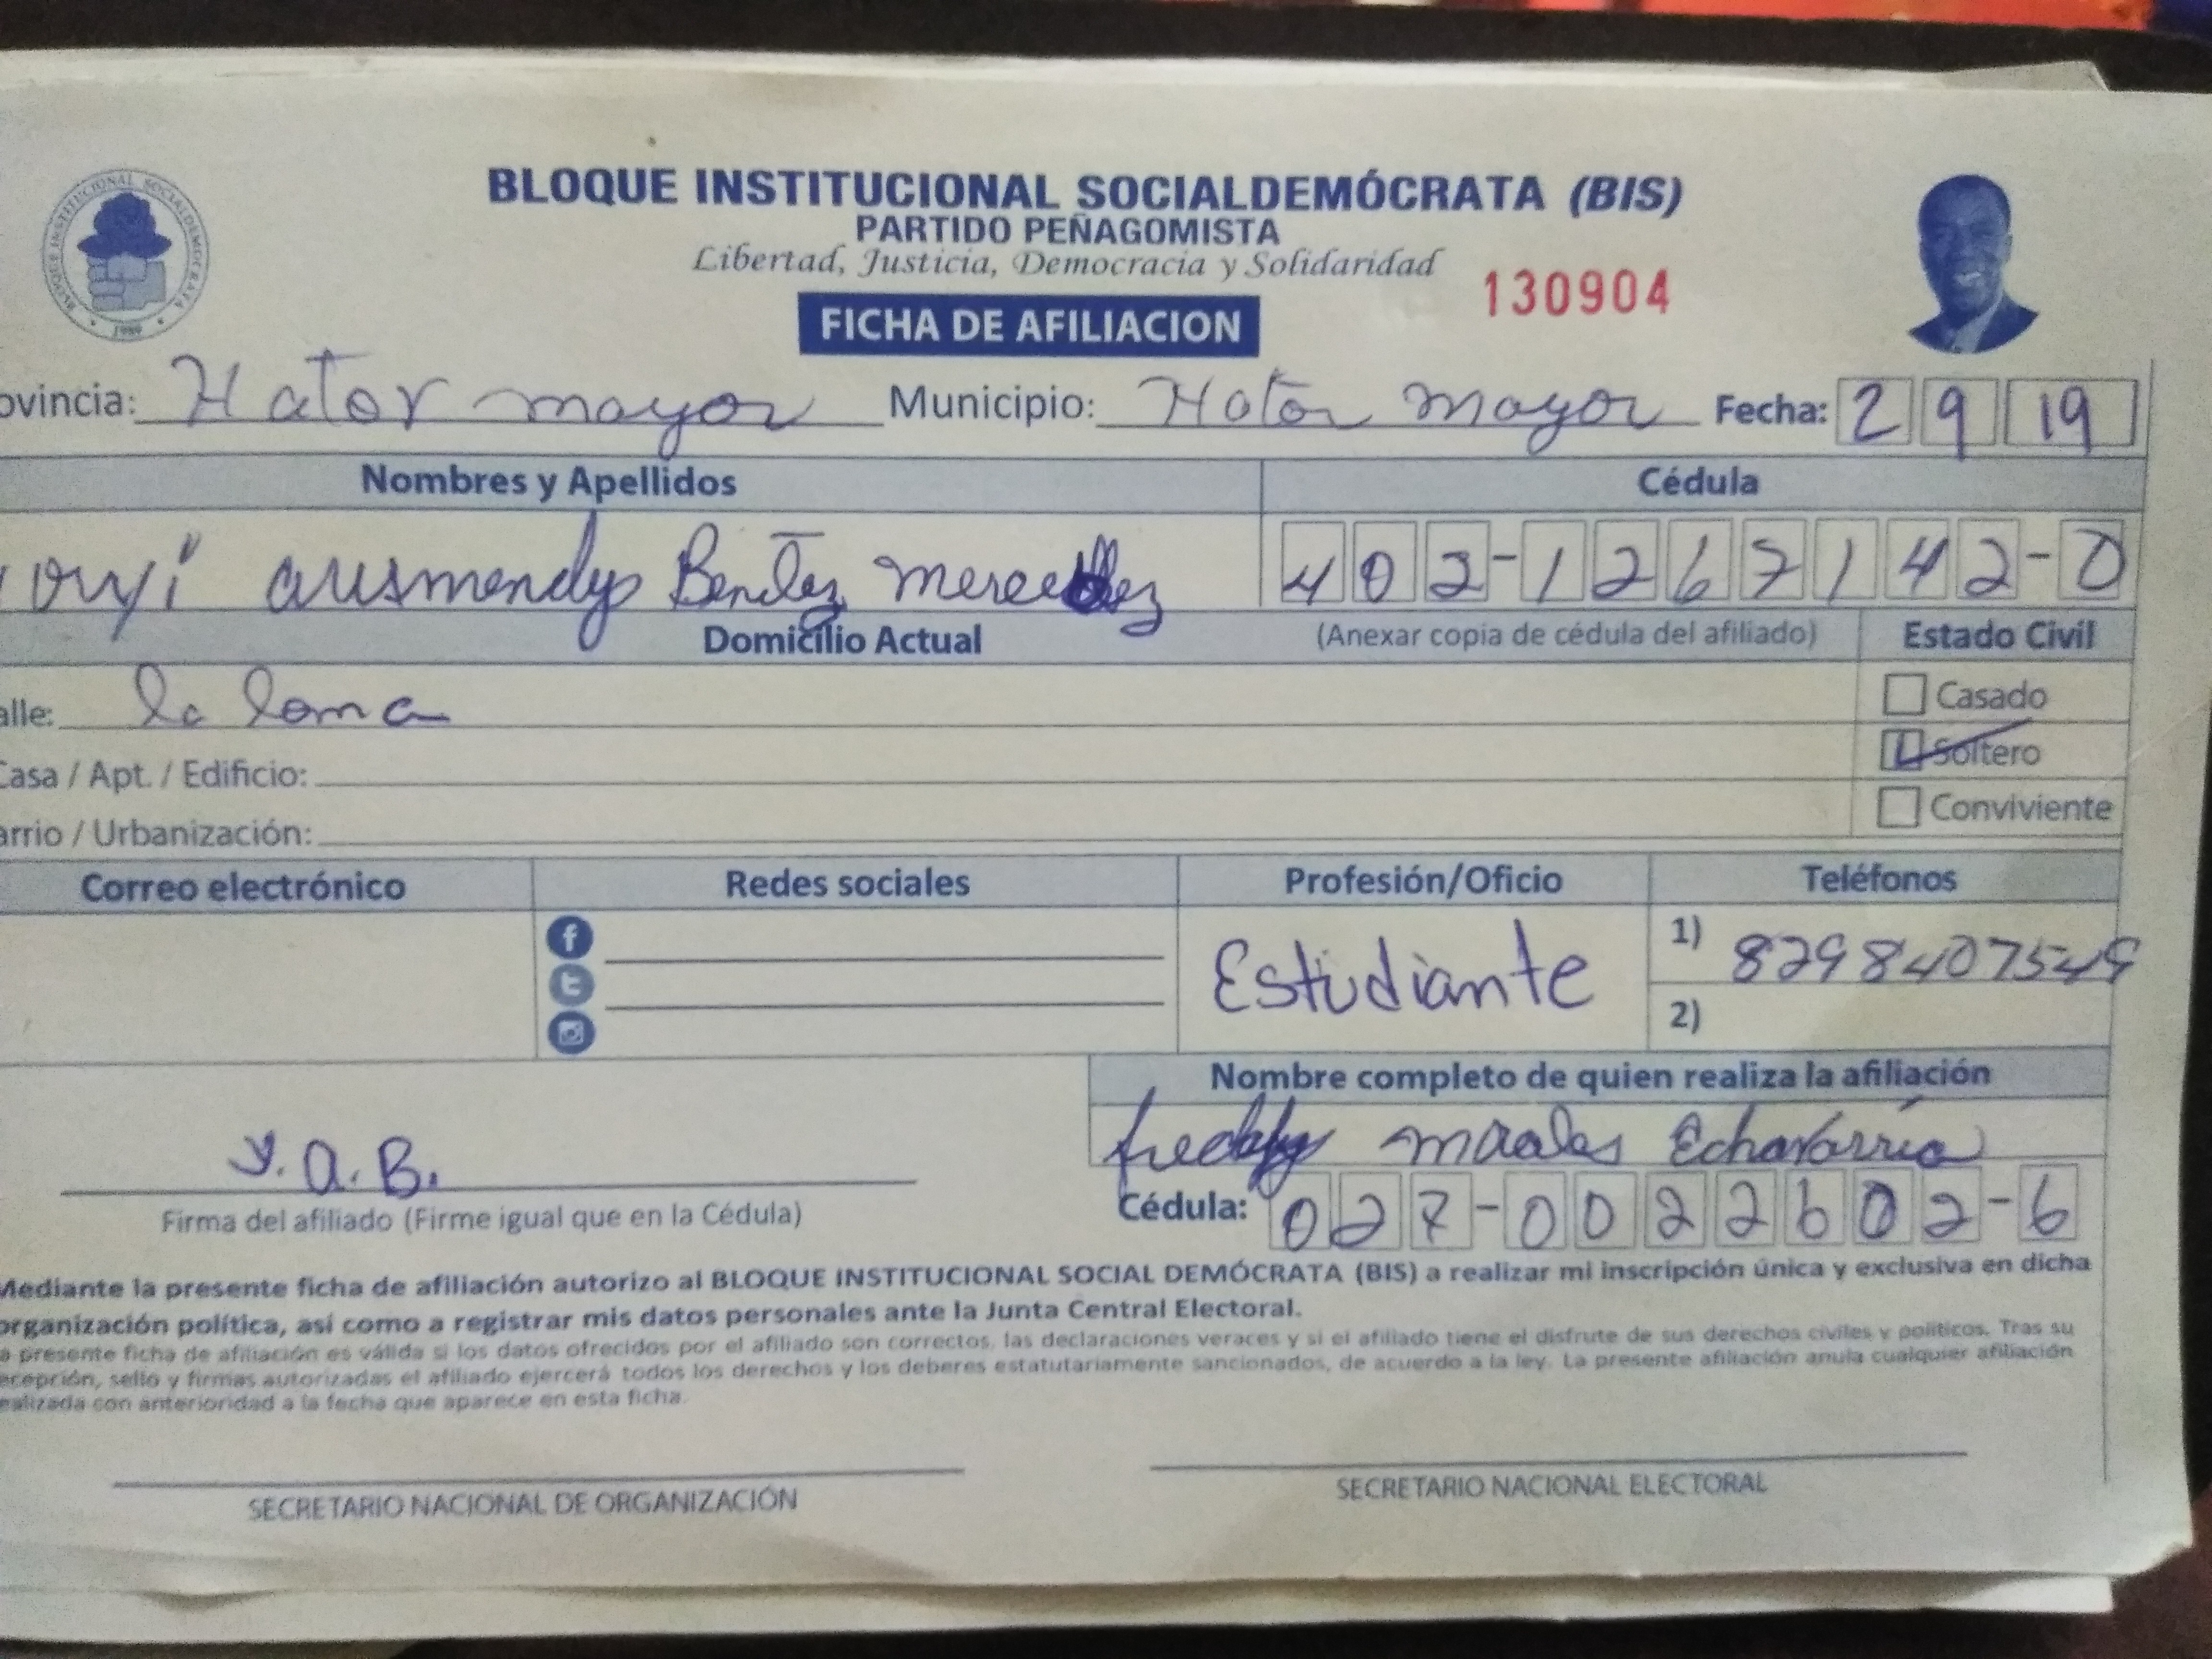 BLOQUE INSTITUCIONAL SOCIALDEMÓCRATA (BIS)
PARTIDO PEÑAGOMISTA
Libertad, Justicia, Democracia y Solidaridad
130904
FICHA DE AFILIACION
BLOQUE INSTITUCIONAL SOCIALDEMOCRATA
ovincia: Hator mayor Municipio: Hator mayor Fecha: 2 9 19
Nombres y Apellidos Cédula
ausmendys Benitez 402-1267142-0
Domicilio Actual (Anexar copia de cédula del afiliado) Estado Civil
alle: la loma
Casado
Soltero
Casa / Apt. / Edificio:
Conviviente
arrio / Urbanización:
Correo electrónico Redes sociales Profesión/Oficio Teléfonos
Estudiante
1) 8298407549
2)
Nombre completo de quien realiza la afiliación
freddy Echavarría
y. a. B.
Firma del afiliado (Firme igual que en la Cédula)
Cédula: 027-0022602-6
Mediante la presente ficha de afiliación autorizo al BLOQUE INSTITUCIONAL SOCIAL DEMÓCRATA (BIS) a realizar mi inscripción única y exclusiva en dicha
organización política, así como a registrar mis datos personales ante la Junta Central Electoral.
a presente ficha de afiliación es válida si los datos ofrecidos por el afiliado son correctos, las declaraciones veraces y si el afiliado tiene el disfrute de sus derechos civiles y políticos. Tras su
ecepción, sello y firmas autorizadas el afiliado ejercerá todos los derechos y los deberes estatutariamente sancionados, de acuerdo a la ley. La presente afiliación anula cualquier afiliación
ealizada con anterioridad a la fecha que aparece en esta ficha.
SECRETARIO NACIONAL DE ORGANIZACIÓN
SECRETARIO NACIONAL ELECTORAL